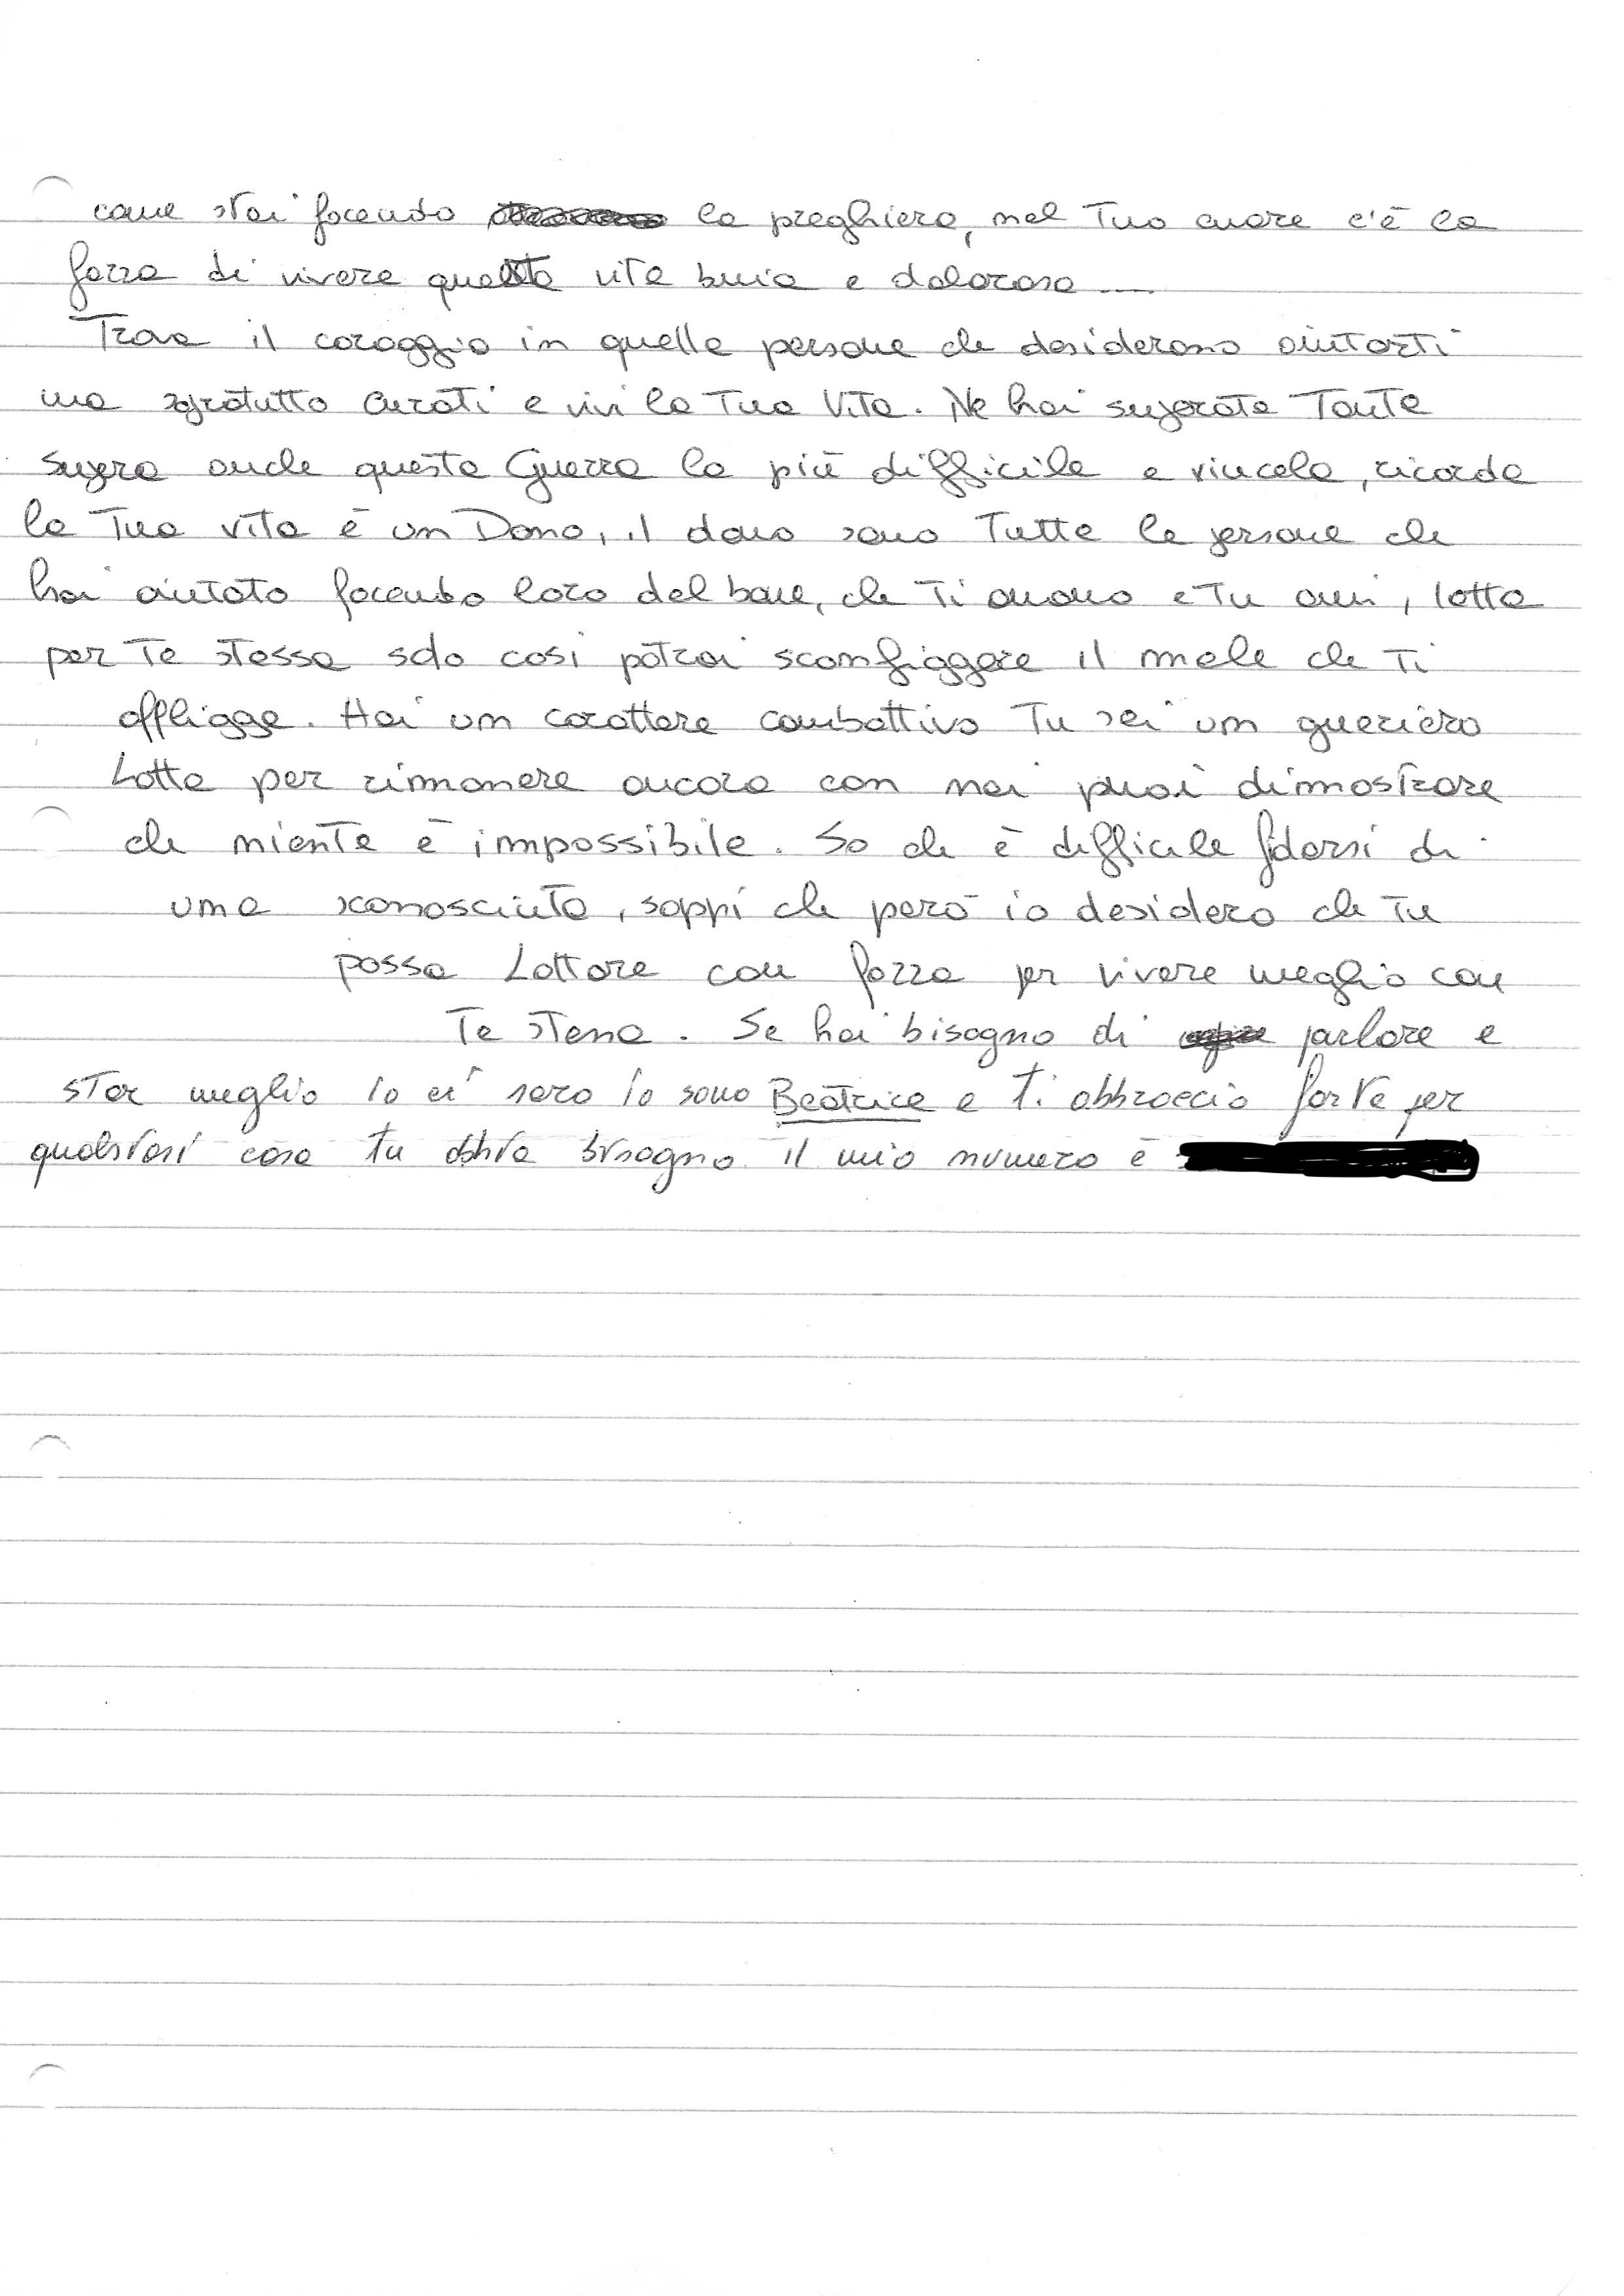 come stai facendo la preghiera, nel Tuo cuore c'è la
forza di vivere questa vita buia e dolorosa ....
Trova il coraggio in quelle persone che desiderano aiutarti
ma sopratutto curati e vivi la Tua Vita. Ne hai superate Tante
supera anche questa Guerra la più difficile e vincela, ricorda
la Tua vita è un Dono, il dono sono Tutte le persone che
hai aiutato facendo loro del bene, che Ti amano e Tu ami, lotta
per Te stessa solo così potrai sconfiggere il male che Ti
affligge. Hai un carattere combattivo Tu sei un gueriero
Lotta per rimanere ancora con noi puoi dimostrare
che niente è impossibile. So che è difficile fidarsi di
una sconosciuta, sappi che però io desidero che Tu
possa Lottare con forza per vivere meglio con
Te stessa. Se hai bisogno di parlare e
star meglio Io ci sarò Io sono Beatrice e Ti abbraccio forte per
qualsiasi cosa tu abbia bisogno il mio numero è